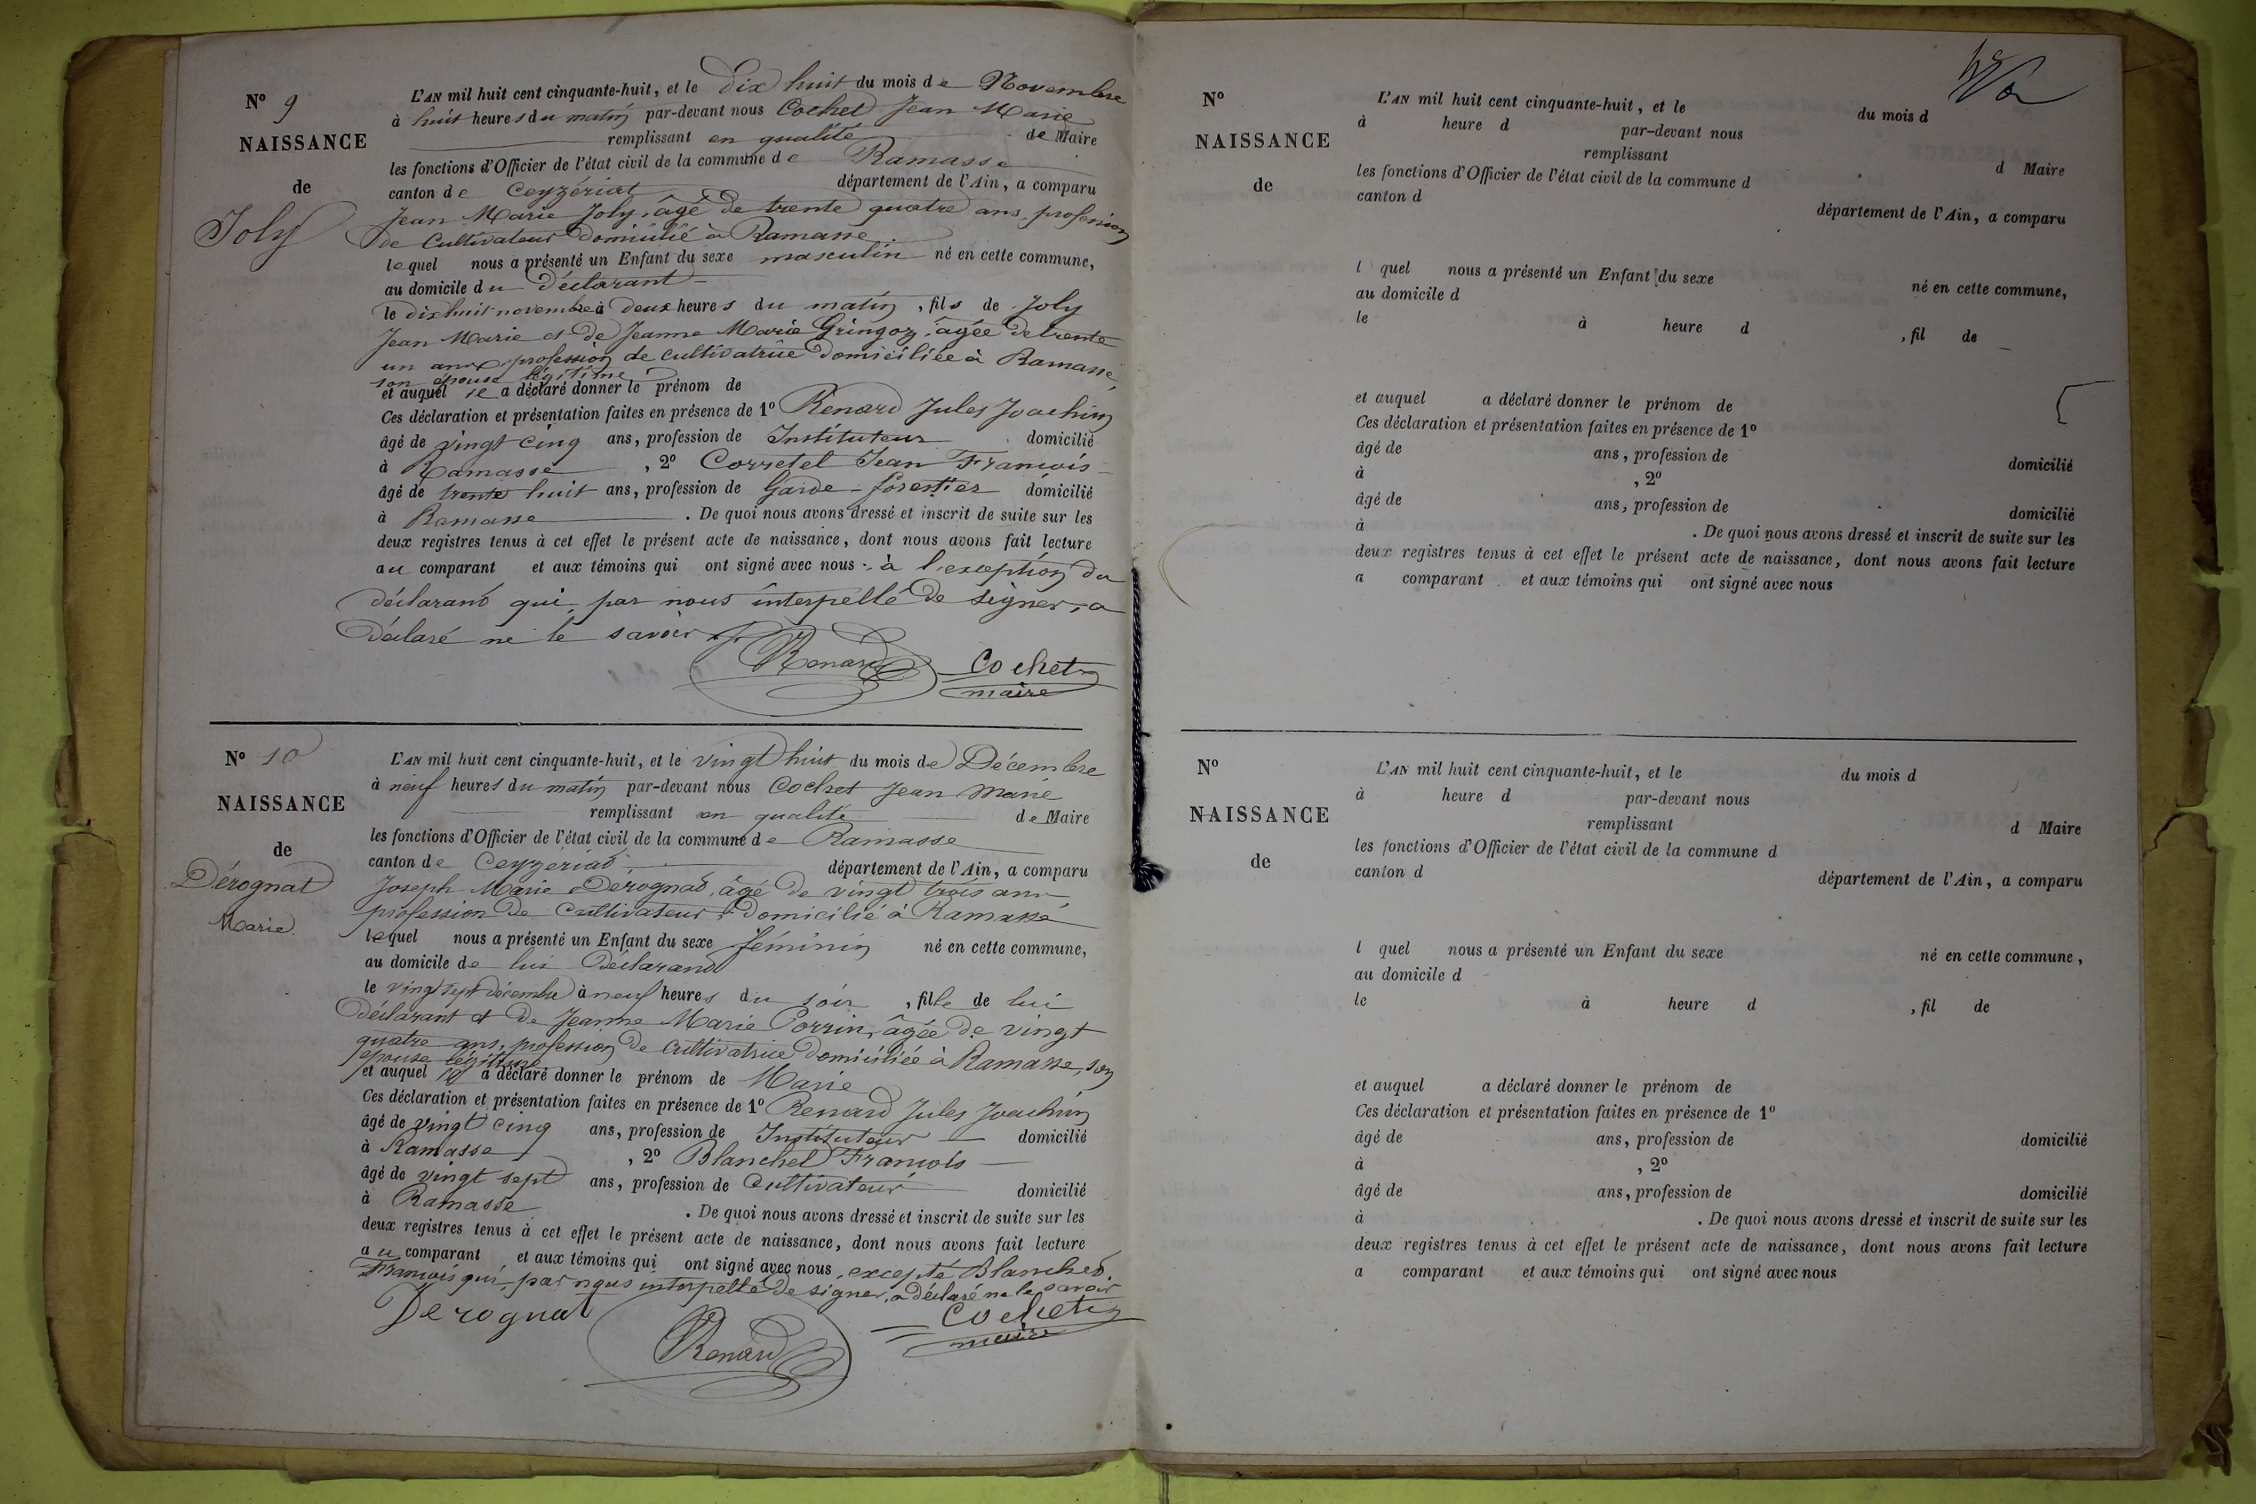 N° 9
NAISSANCE
de
Joly
L'AN mil huit cent cinquante-huit, et le Dix huit du mois de Novembre
à huit heures du matin par-devant nous Cochet Jean Marie
remplissant en qualité de Maire
les fonctions d'Officier de l'état civil de la commune de Ramasse
canton de Ceyzériat département de l'Ain, a comparu
Jean Marie Joly, âgé de trente quatre ans, profession
de Cultivateur domicilié à Ramasse
lequel nous a présenté un Enfant du sexe masculin né en cette commune,
au domicile du Déclarant
le dix huit novembre à deux heures du matin, fils de Joly
Jean Marie et de Jeanne Marie Gringoz, âgée de trente
un ans profession de cultivatrice domiciliée à Ramasse,
son épouse légitime
et auquel il a déclaré donner le prénom de
Ces déclaration et présentation faites en présence de 1° Renard Jules Joachim
âgé de vingt cinq ans, profession de Instituteur domicilié
à Ramasse, 2° Corretel Jean François
âgé de trente huit ans, profession de Garde-forestier domicilié
à Ramasse. De quoi nous avons dressé et inscrit de suite sur les
deux registres tenus à cet effet le présent acte de naissance, dont nous avons fait lecture
au comparant et aux témoins qui ont signé avec nous à l'exception du
déclarant qui, par nous interpellé de signer, a
déclaré ne le savoir
Renard Cochet
maire
N° 10
NAISSANCE
de
Dérognat
Marie
L'AN mil huit cent cinquante-huit, et le vingt huit du mois de Décembre
à neuf heures du matin par-devant nous Cochet Jean Marie
remplissant en qualité de Maire
les fonctions d'Officier de l'état civil de la commune de Ramasse
canton de Ceyzériat département de l'Ain, a comparu
Joseph Marie Dérognat, âgé de vingt trois ans,
profession de Cultivateur, domicilié à Ramasse
lequel nous a présenté un Enfant du sexe féminin né en cette commune,
au domicile de lui Déclarant
le vingt sept décembre à neuf heures du soir, fille de lui
déclarant et de Jeanne Marie Porrin, âgée de vingt
quatre ans, profession de cultivatrice domiciliée à Ramasse, son
épouse légitime
et auquel il a déclaré donner le prénom de Marie
Ces déclaration et présentation faites en présence de 1° Renard Jules Joachim
âgé de vingt cinq ans, profession de Instituteur domicilié
à Ramasse, 2° Blanchet François
âgé de vingt sept ans, profession de Cultivateur domicilié
à Ramasse. De quoi nous avons dressé et inscrit de suite sur les
deux registres tenus à cet effet le présent acte de naissance, dont nous avons fait lecture
au comparant et aux témoins qui ont signé avec nous, excepté Blanchet
François qui, par nous interpellé de signer, a déclaré ne le savoir
Derognat Renard Cochet
maire
N°
NAISSANCE
de
L'AN mil huit cent cinquante-huit, et le du mois d
à heure d par-devant nous
remplissant d Maire
les fonctions d'Officier de l'état civil de la commune d
canton d département de l'Ain, a comparu
l quel nous a présenté un Enfant du sexe né en cette commune,
au domicile d
le à heure d, fil de
et auquel a déclaré donner le prénom de
Ces déclaration et présentation faites en présence de 1°
âgé de ans, profession de domicilié
à, 2°
âgé de ans, profession de domicilié
à. De quoi nous avons dressé et inscrit de suite sur les
deux registres tenus à cet effet le présent acte de naissance, dont nous avons fait lecture
a comparant et aux témoins qui ont signé avec nous
N°
NAISSANCE
de
L'AN mil huit cent cinquante-huit, et le du mois d
à heure d par-devant nous
remplissant d Maire
les fonctions d'Officier de l'état civil de la commune d
canton d département de l'Ain, a comparu
l quel nous a présenté un Enfant du sexe né en cette commune,
au domicile d
le à heure d, fil de
et auquel a déclaré donner le prénom de
Ces déclaration et présentation faites en présence de 1°
âgé de ans, profession de domicilié
à, 2°
âgé de ans, profession de domicilié
à. De quoi nous avons dressé et inscrit de suite sur les
deux registres tenus à cet effet le présent acte de naissance, dont nous avons fait lecture
a comparant et aux témoins qui ont signé avec nous